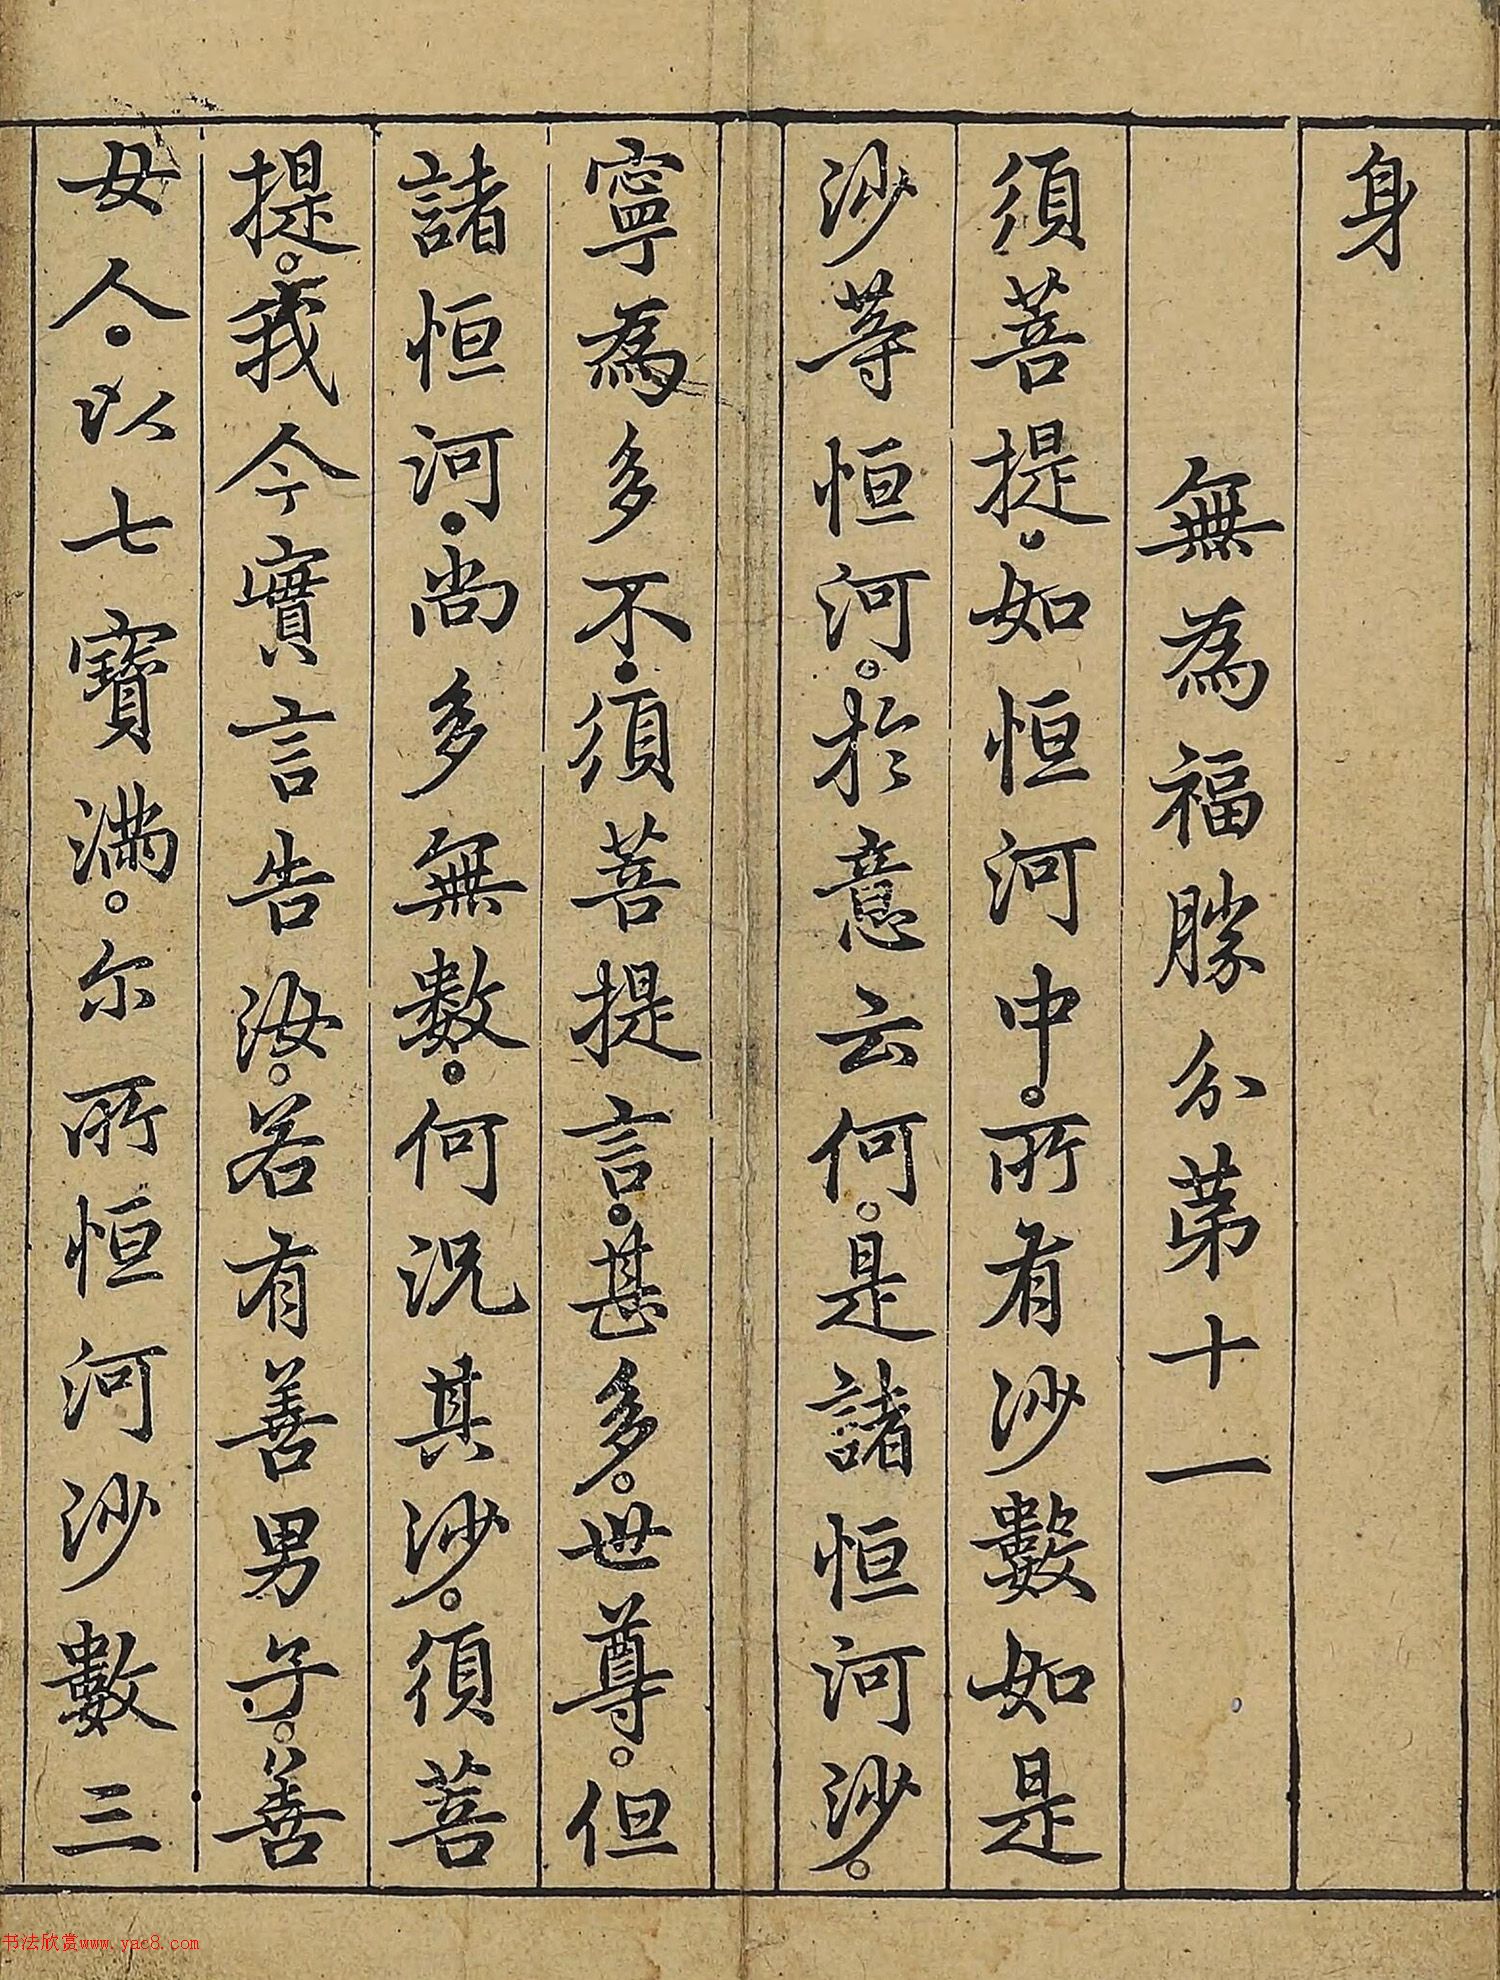 身
無為福勝分苐十一
須菩提如恒河中。所有沙數如是
沙等恒河。於意云何。是諸恒河沙。
寧為多不須菩提言。甚多。世尊。但
諸恒河尚多無數。何況其沙。須菩
提。我今實言告汝。若有善男子。善
女人以七寶滿。尔所恒河沙數三
书法欣赏www.yac8.com